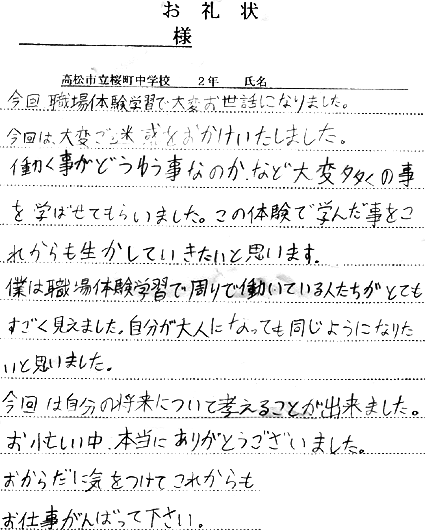 お礼状
様
高松市立桜町中学校 2年 氏名
今回、職場体験学習で大変お世話になりました。
今回は、大変ご迷惑をおかけいたしました。
働く事がどうゆう事なのか、など大変多くの事
を学ばせてもらいました。この体験で学んだ事をこ
れからも生かしていきたいと思います。
僕は職場体験学習で周りで働いている人たちがとても
すごく見えました。自分が大人になっても同じようになりた
いと思いました。
今回は自分の将来について考えることが出来ました。
お忙しい中、本当にありがとうございました。
おからだに気をつけてこれからも
お仕事がんばって下さい。